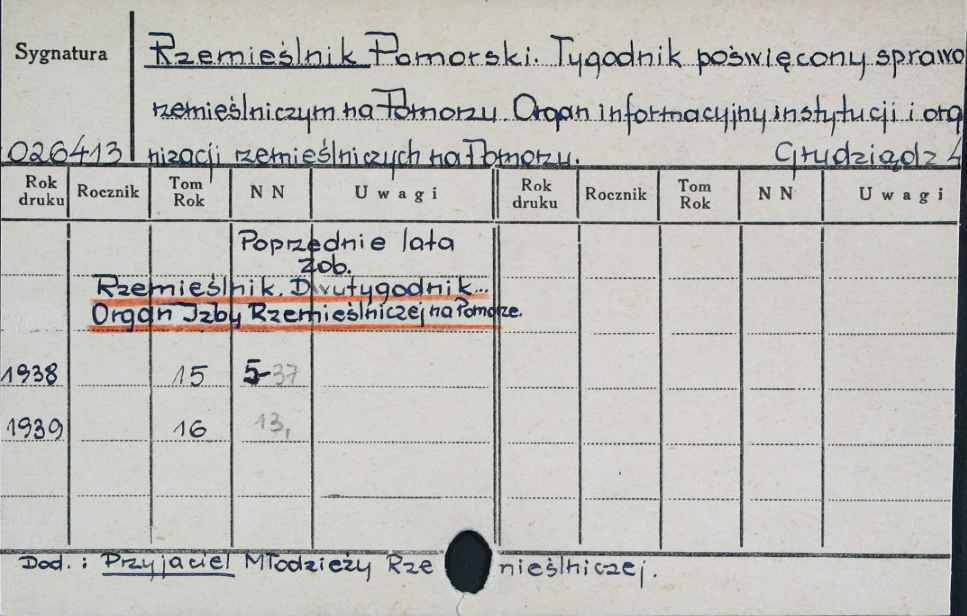 Sygnatura
Rzemieślnik Pomorski. Tygodnik poświęcony sprawo
rzemieślniczym na Pomorzu. Organ informacyjny instytucji i orga
026413 nizacji rzemieślniczych na Pomorzu. Grudziądz
Rok druku Rocznik Tom Rok N N Uwagi Rok druku Rocznik Tom Rok N N Uwagi
Poprzednie lata
zob.
Rzemieślnik. Dwutygodnik...
Organ Izby Rzemieślniczej na Pomorze.
1938 15 5-37
1939 16 13,
Dod.: Przyjaciel Młodzieży Rze nieślniczej.